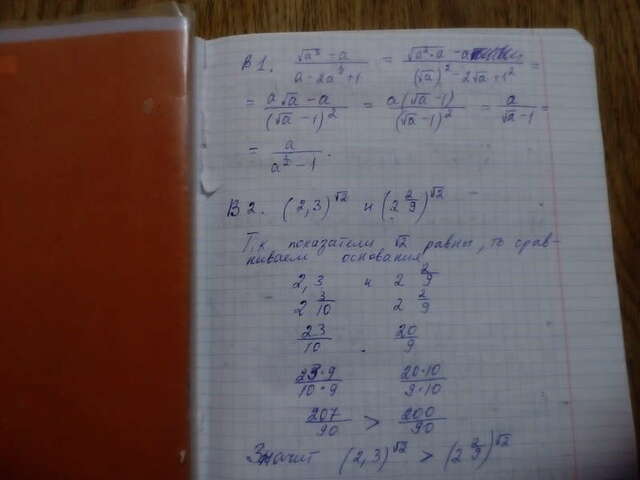 В1. (√a³ - a)/(a - 2a^½ + 1) = (√(a²·a) - a)/((√a)² - 2√a + 1²) =
= (a√a - a)/((√a - 1)²) = (a(√a - 1))/((√a - 1)²) = a/(√a - 1) =
= a/(a^½ - 1).
В2. (2,3)^√2 и (2 2/9)^√2
Т.к показатели √2 равны, то срав-
ниваем основания
2,3 и 2 2/9
2 3/10 2 2/9
23/10 . 20/9
(23·9)/(10·9) (20·10)/(9·10)
207/90 > 200/90
Значит (2,3)^√2 > (2 2/9)^√2